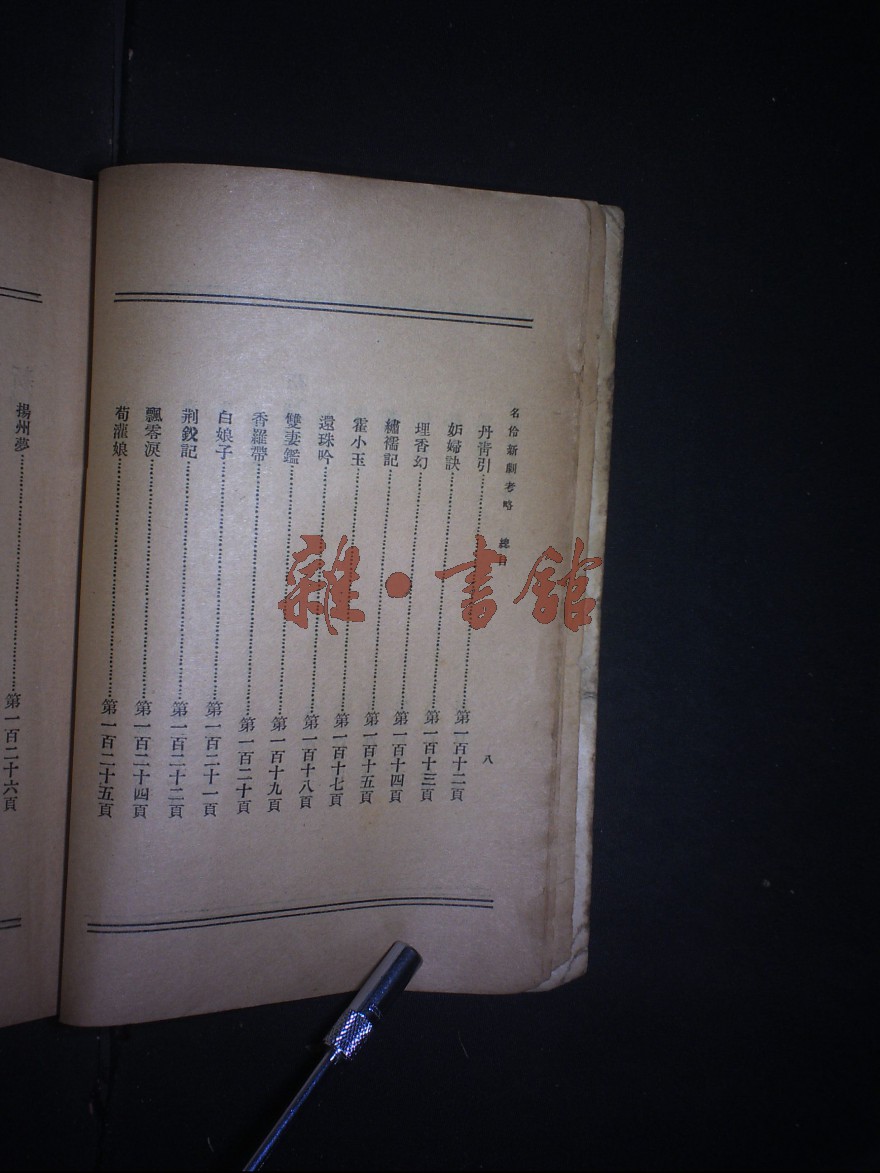 名伶新劇考略　總目
八
丹靑引………第一百十二頁
妬婦訣………第一百十三頁
埋香幻………第一百十四頁
繡襦記………第一百十五頁
霍小玉………第一百十七頁
還珠吟………第一百十八頁
雙妻鑑………第一百十九頁
香羅帶………第一百二十頁
白娘子………第一百二十一頁
荆釵記………第一百二十二頁
飄零淚………第一百二十四頁
荀灌娘………第一百二十五頁
揚州夢………第一百二十六頁
雜·書館